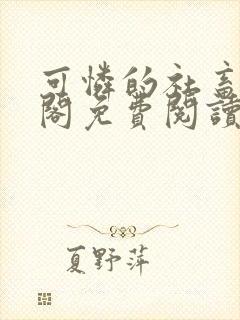 可憐的社畜
閣免費閱讀
夏野萍